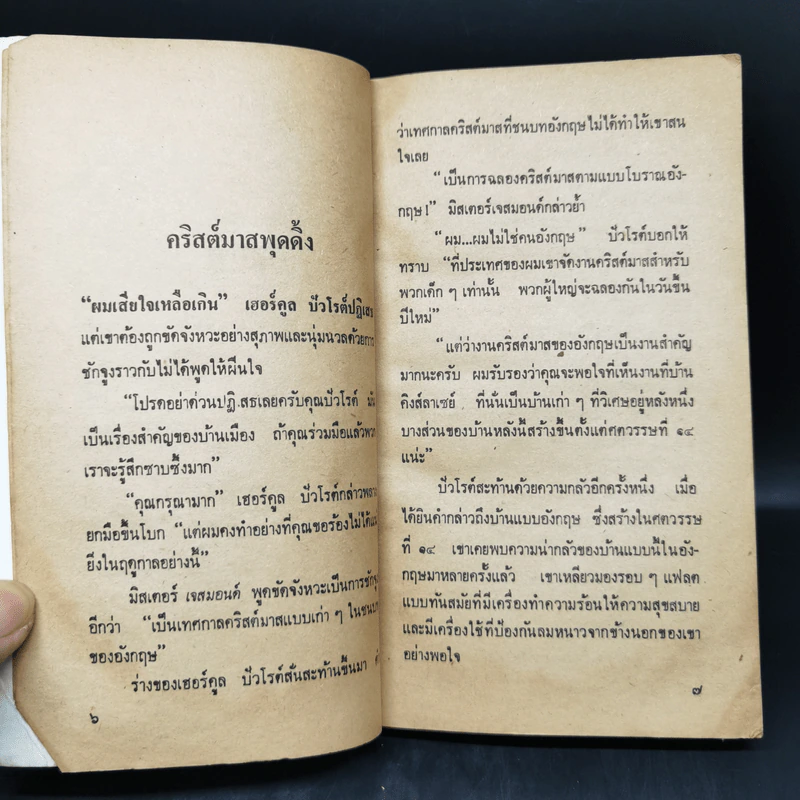 คริสต์มาสพุดดิ้ง
“ผมเสียใจเหลือเกิน” เฮอร์คูล ปัวโรต์ปฏิเสธ
แต่เขาต้องถูกขัดจังหวะอย่างสุภาพและนุ่มนวลด้วยการ
ชักจูงราวกับไม่ได้พูดให้ฝืนใจ
“โปรดอย่าด่วนปฏิเสธเลยครับคุณปัวโรต์ มัน
เป็นเรื่องสำคัญของบ้านเมือง ถ้าคุณร่วมมือแล้วพวก
เราจะรู้สึกซาบซึ้งมาก”
“คุณกรุณามาก” เฮอร์คูล ปัวโรต์กล่าวพลาง
ยกมือขึ้นโบก “แต่ผมคงทำอย่างที่คุณขอร้องไม่ได้
ยิ่งในฤดูกาลอย่างนี้”
มิสเตอร์ เจสมอนด์ พูดขัดจังหวะเป็นการชักจูง
อีกว่า “เป็นเทศกาลคริสต์มาสแบบเก่า ๆ ในชนบท
ของอังกฤษ”
ร่างของเฮอร์คูล ปัวโรต์สั่นสะท้านขึ้นมา
๖
ว่าเทศกาลคริสต์มาสที่ชนบทอังกฤษไม่ได้ทำให้เขาสน
ใจเลย
“เป็นการฉลองคริสต์มาสตามแบบโบราณอัง-
กฤษ!” มิสเตอร์เจสมอนด์กล่าวย้ำ
“ผม...ผมไม่ใช่คนอังกฤษ” ปัวโรต์บอกให้
ทราบ “ที่ประเทศของผมเขาจัดงานคริสต์มาสสำหรับ
พวกเด็ก ๆ เท่านั้น พวกผู้ใหญ่จะฉลองกันในวันขึ้น
ปีใหม่”
“แต่ว่างานคริสต์มาสของอังกฤษเป็นงานสำคัญ
มากนะครับ ผมรับรองว่าคุณจะพอใจที่เห็นงานที่บ้าน
คิงส์ลาเซย์ ที่นั่นเป็นบ้านเก่า ๆ ที่วิเศษอยู่หลังหนึ่ง
บางส่วนของบ้านหลังนี้สร้างขึ้นตั้งแต่ศตวรรษที่ ๑๔
แน่ะ”
ปัวโรต์สะท้านด้วยความกลัวอีกครั้งหนึ่ง เมื่อ
ได้ยินคำกล่าวถึงบ้านแบบอังกฤษ ซึ่งสร้างในศตวรรษ
ที่ ๑๔ เขาเคยพบความน่ากลัวของบ้านแบบนี้ในอัง-
กฤษมาหลายครั้งแล้ว เขาเหลียวมองรอบ ๆ แฟลต
แบบทันสมัยที่มีเครื่องทำความร้อนให้ความสุขสบาย
และมีเครื่องใช้ที่ป้องกันลมหนาวจากข้างนอกของเขา
อย่างพอใจ
๗